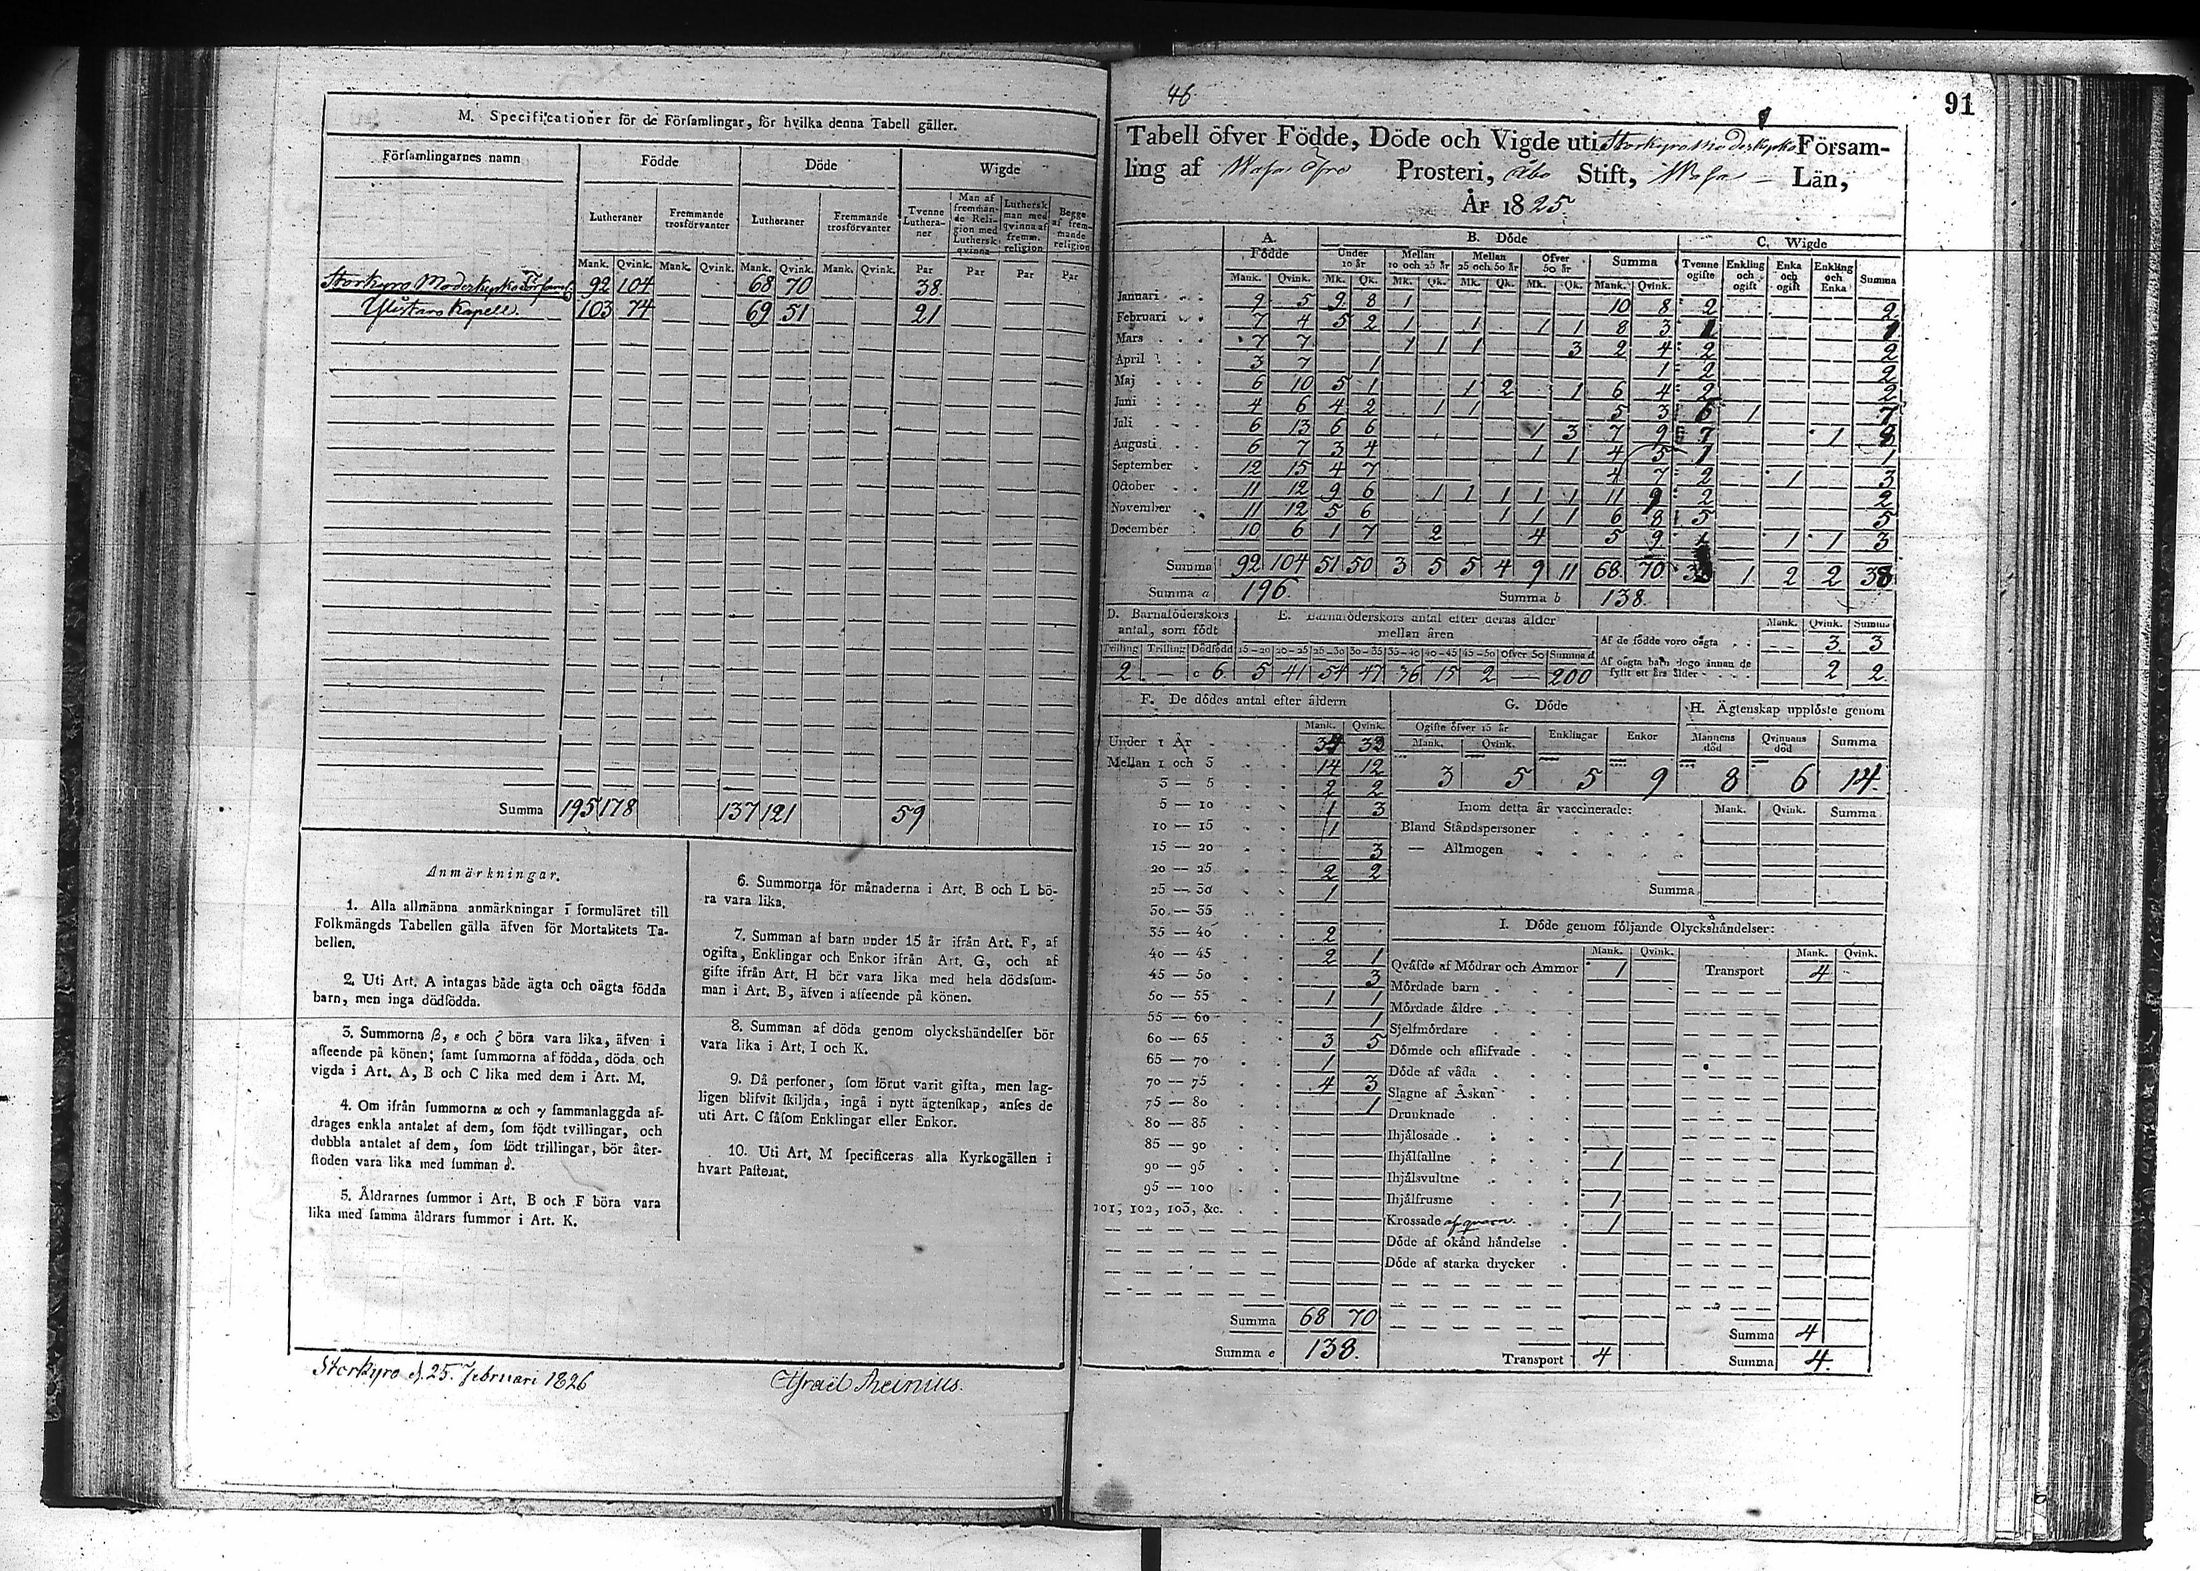 M. Specificationer för de Församlingar, för hvilka denna Tabell gäller.
Församlingarnes namn | Födde | Döde | Wigde
Lutheraner | Fremmande trosförvanter | Lutheraner | Fremmande trosförvanter | Tvenne Lutheraner | Man af fremmande Religion med Luthersk qvinna | Luthersk man med qvinna af fremm. religion | Begge af fremmande religion
Mank. | Qvink. | Mank. | Qvink. | Mank. | Qvink. | Mank. | Qvink. | Par | Par | Par | Par
Storkyro Moderkyrko Församl. | 92 | 104 | 68 | 70 | 38
Ylistaro Kapell. | 103 | 74 | 69 | 51 | 21
Summa | 195 | 178 | 137 | 121 | 59
Anmärkningar.
1. Alla allmänna anmärkningar i formuläret till
Folkmängds Tabellen gälla äfven för Mortalitets Ta-
bellen.
2. Uti Art. A intagas både ägta och oägta födda
barn, men inga dödfödda.
3. Summorna β, ε och ζ böra vara lika, äfven i
afseende på könen; samt summorna af födda, döda och
vigda i Art. A, B och C lika med dem i Art. M.
4. Om ifrån summorna α och γ sammanlaggda af-
drages enkla antalet af dem, som födt tvillingar, och
dubbla antalet af dem, som födt trillingar, bör åter-
stoden vara lika med summan δ.
5. Åldrarnes summor i Art. B och F böra vara
lika med samma åldrars summor i Art. K.
6. Summorna för månaderna i Art. B och L bö-
ra vara lika.
7. Summan af barn under 15 år ifrån Art. F, af
ogifta, Enklingar och Enkor ifrån Art. G, och af
gifte ifrån Art. H bör vara lika med hela dödsfum-
man i Art. B, äfven i afseende på könen.
8. Summan af döda genom olyckshändelser bör
vara lika i Art. I och K.
9. Då personer, som förut varit gifta, men lag-
ligen blifvit skiljda, ingå i nytt ägtenskap, anses de
uti Art. C såsom Enklingar eller Enkor.
10. Uti Art. M specificeras alla Kyrkogällen i
hvart Pastorat.
Storkyro d. 25. Februari 1826
46
91
Tabell öfver Födde, Döde och Vigde uti Storkyro Moderkyrko Försam-
ling af Wasa Prosteri, Åbo Stift, Wasa Län,
År 1825.
A. Födde | B. Döde | C. Wigde
Under 10 år | Mellan 10 och 25 år | Mellan 25 och 50 år | Öfver 50 år | Summa | Tvenne ogifte | Enkling och ogift | Enka och ogift | Enkling och Enka | Summa
Mank. | Qvink. | Mk. | Qk. | Mk. | Qk. | Mk. | Qk. | Mk. | Qk. | Mank. | Qvink.
Januari | 9 | 5 | 9 | 8 | 1 | 10 | 8 | 2 | 2
Februari | 7 | 4 | 5 | 2 | 1 | 1 | 1 | 1 | 8 | 3 | 1 | 1
Mars | 7 | 7 | 1 | 1 | 1 | 3 | 2 | 4 | 2 | 2
April | 3 | 7 | 1 | 1 | 2 | 2
Maj | 6 | 10 | 5 | 1 | 1 | 2 | 1 | 6 | 4 | 2 | 2
Juni | 4 | 6 | 4 | 2 | 1 | 1 | 5 | 3 | 6 | 1 | 7
Juli | 6 | 13 | 6 | 6 | 1 | 3 | 7 | 9 | 7 | 1 | 8
Augusti | 6 | 7 | 3 | 4 | 1 | 1 | 4 | 5 | 1 | 1
September | 12 | 15 | 4 | 7 | 4 | 7 | 2 | 1 | 3
October | 11 | 12 | 9 | 6 | 1 | 1 | 1 | 1 | 1 | 11 | 9 | 2 | 2
November | 11 | 12 | 5 | 6 | 1 | 1 | 1 | 6 | 8 | 5 | 5
December | 10 | 6 | 1 | 7 | 2 | 4 | 5 | 9 | 1 | 1 | 1 | 3
Summa | 92 | 104 | 51 | 50 | 3 | 5 | 5 | 4 | 9 | 11 | 68 | 70 | 1 | 2 | 2 | 38
Summa a | 196. | Summa b | 138.
D. Barnaföderskors antal, som födt
Tvilling | Trilling | Dödfödd
2 | — | c 6
E. Barnaföderskors antal efter deras ålder mellan åren
15—20 | 20—25 | 25—30 | 30—35 | 35—40 | 40—45 | 45—50 | Öfver 50 | Summa d
5 | 41 | 54 | 47 | 36 | 15 | 2 | — | 200
Mank. | Qvink. | Summa
Af de födde voro oägta | 3 | 3
Af oägta barn dogo innan de fyllt ett års ålder | 2 | 2
F. De dödes antal efter åldern
Mank. | Qvink.
Under 1 År | 34 | 33
Mellan 1 och 3 | 14 | 12
3 — 5 | 2 | 2
5 — 10 | 1 | 3
10 — 15 | 1
15 — 20 | 3
20 — 25 | 2 | 2
25 — 30 | 1
30 — 35
35 — 40 | 2
40 — 45 | 2 | 1
45 — 50 | 3
50 — 55 | 1 | 1
55 — 60 | 1
60 — 65 | 3 | 5
65 — 70 | 1
70 — 75 | 4 | 3
75 — 80 | 1
80 — 85
85 — 90
90 — 95
95 — 100
101, 102, 103, &c.
Summa | 68 | 70
Summa e | 138.
G. Döde
Ogifte öfver 15 år | Enklingar | Enkor
Mank. | Qvink.
3 | 5 | 5 | 9
H. Ägtenskap upplöste genom
Mannens död | Qvinnans död | Summa
8 | 6 | 14.
Inom detta år vaccinerade: | Mank. | Qvink. | Summa
Bland Ståndspersoner
— Allmogen
Summa
I. Döde genom följande Olyckshändelser:
Mank. | Qvink. | Mank. | Qvink.
Qväfde af Mödrar och Ammor | 1 | Transport | 4
Mördade barn
Mördade äldre
Sjelfmördare
Dömde och aflifvade
Döde af våda
Slagne af Åskan
Drunknade
Ihjälosade
Ihjälfallne | 1
Ihjälsvultne
Ihjälfrusne | 1
Krossade af qvarn | 1
Döde af okänd händelse
Döde af starka drycker
Summa | 4
Transport | 4 | Summa | 4.